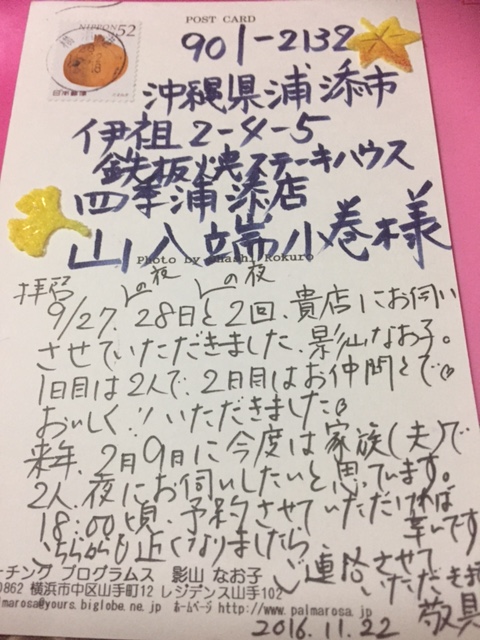 POST CARD
NIPPON 52
901-2132
沖縄県浦添市
伊祖2-4-5
鉄板焼ステーキハウス
四季浦添店
山八端小巻様
拝啓 の夜 の夜
9/27、28日と2回、貴店にお伺い
させていただきました、影山なお子。
1日目は2人で、2日目はお仲間とで。
おいしく!!いただきました
来年、2月9日に今度は家族(夫)で
2人、夜にお伺いしたいと思っています。
18:00頃、予約させていただければ
幸いです
こちらからも近くなりましたら、
ご連絡させて
いただきま
敬具
ーチング プログラムス 影山 なお子
0862 横浜市中区山手町12 レジデンス山手102
lmarosa@yours.biglobe.ne.jp ホームページ http://www.palmarosa.
2016.11.22